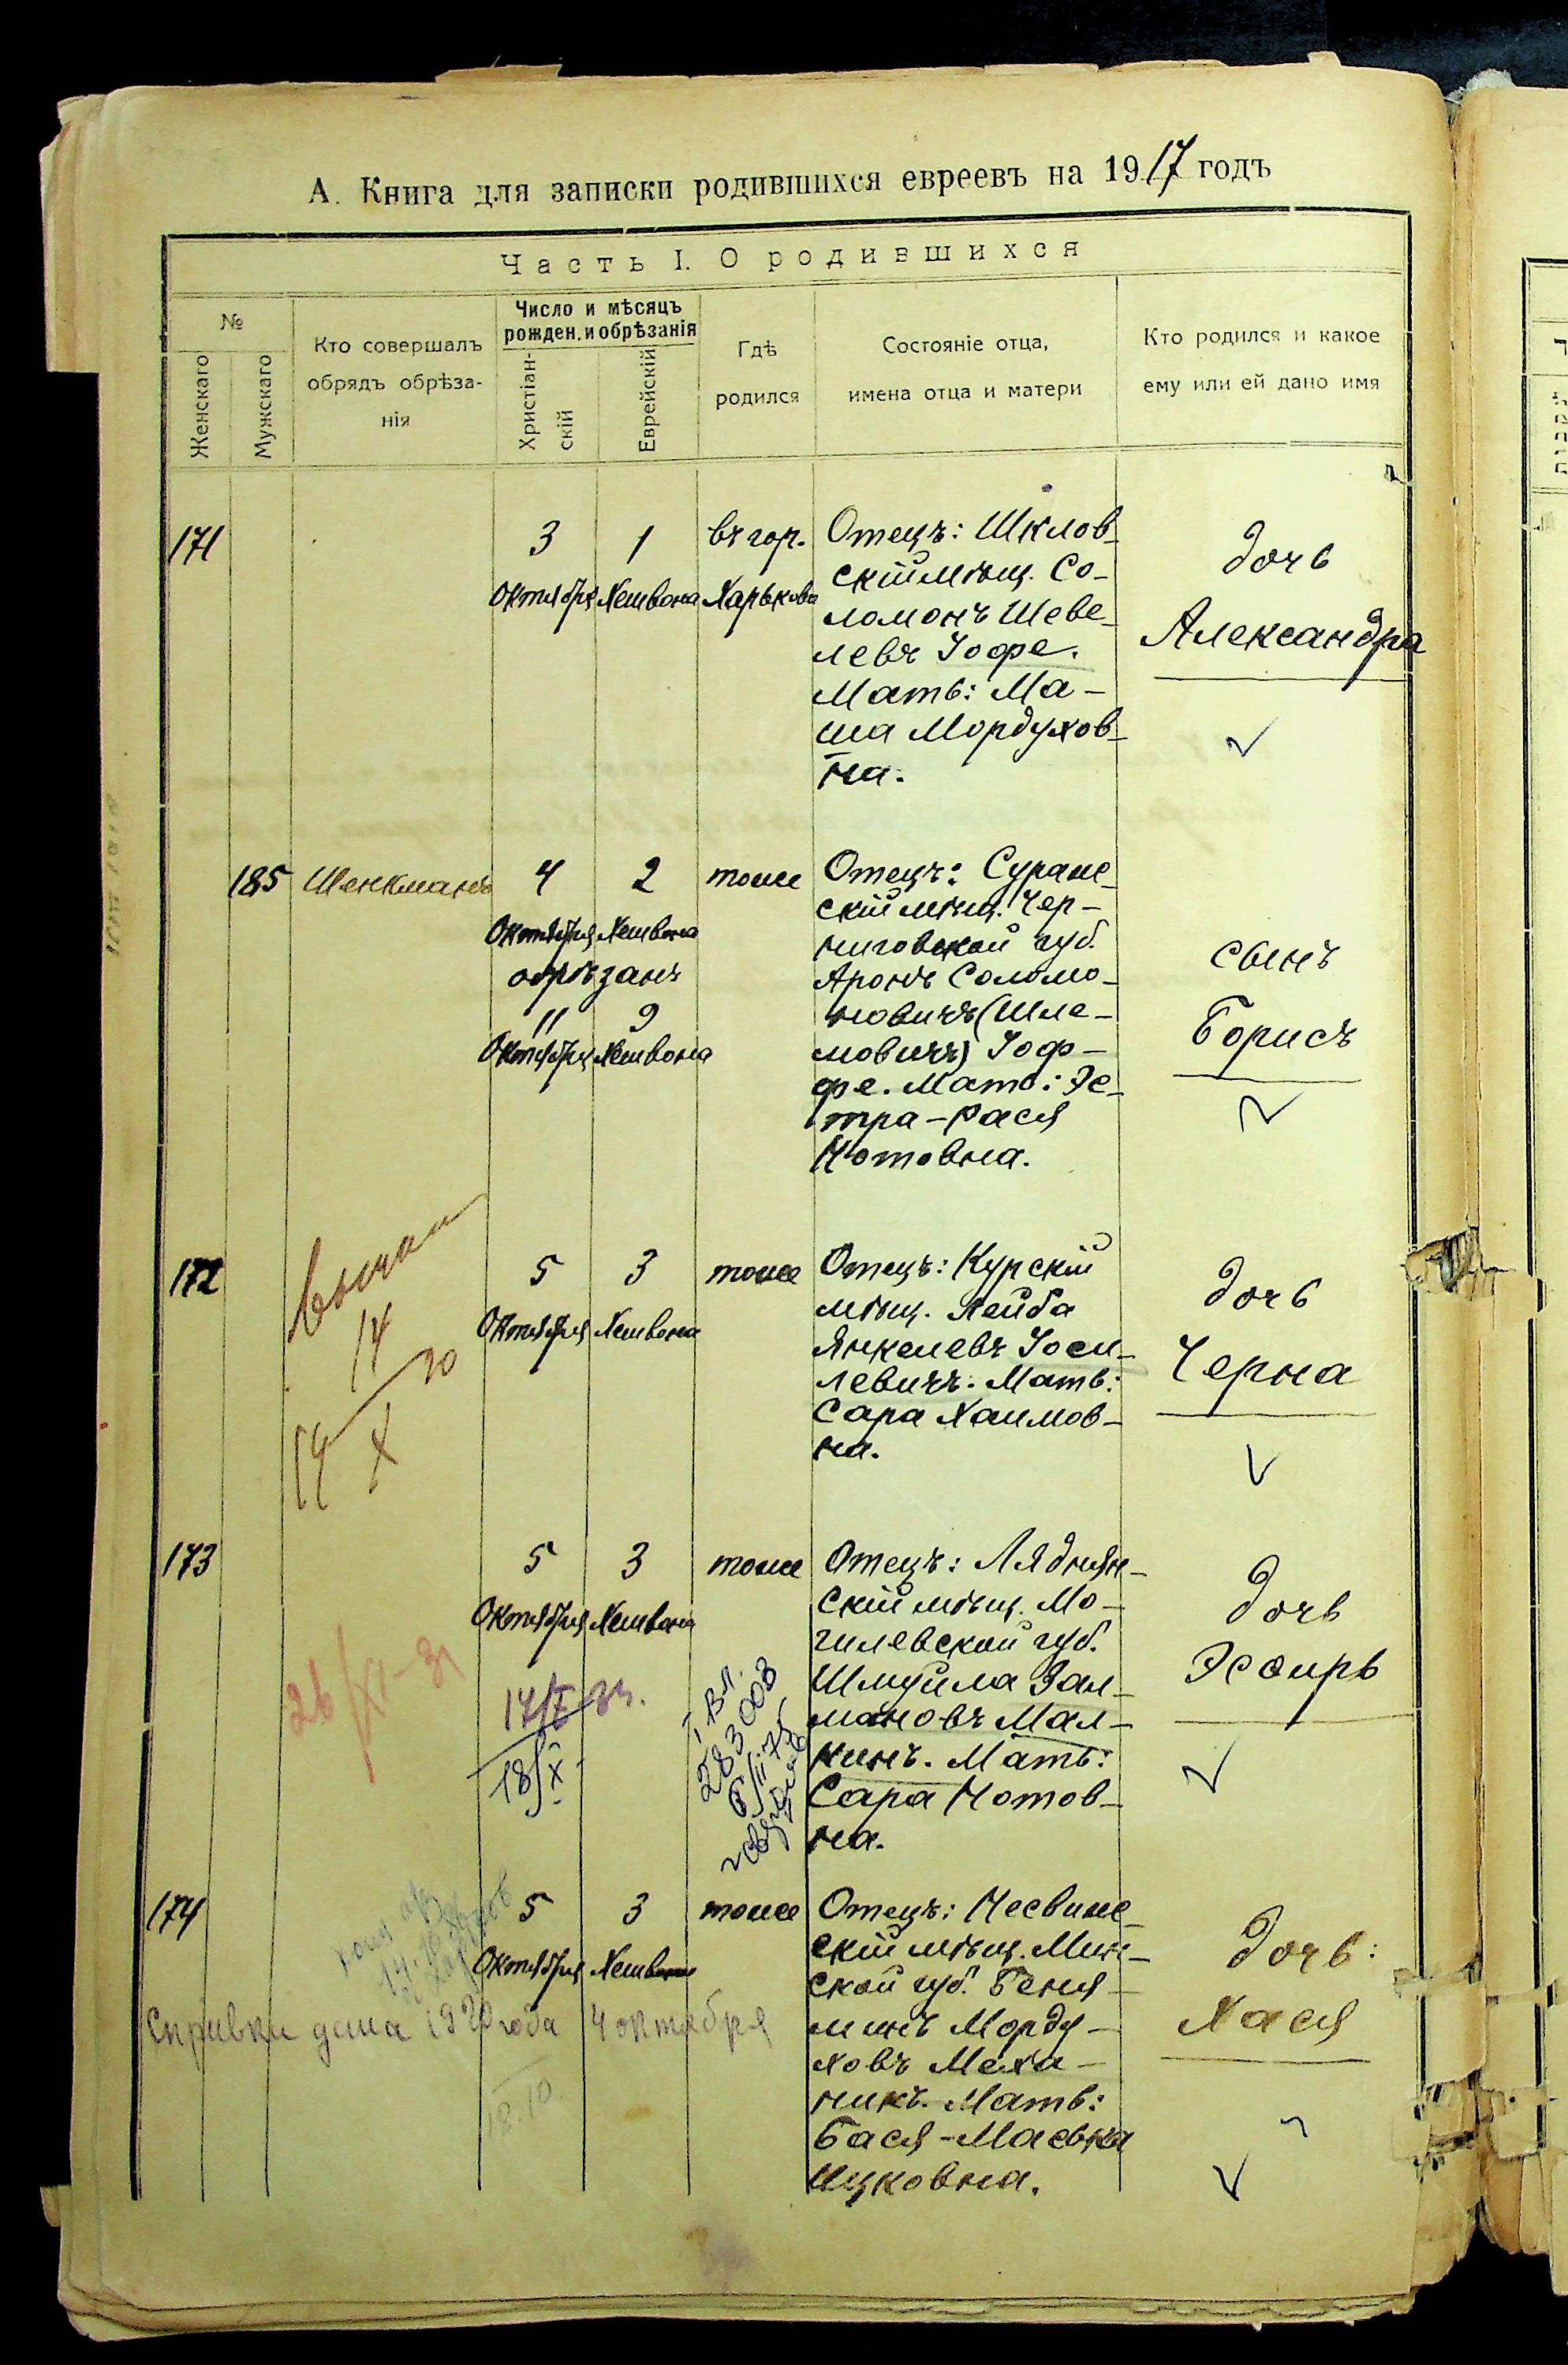 А. Книга для записки родившихся евреевъ на 1917 годъ
Часть I. О родившихся
№
Женскаго
Мужскаго
Кто совершалъ
обрядъ обрѣза-
нія
Число и мѣсяцъ
рожден. и обрѣзанія
Христіан-
скій
Еврейскій
Гдѣ
родился
Состояніе отца,
имена отца и матери
Кто родился и какое
ему или ей дано имя
171
3
Октября
1
Хешвона
въ гор.
Харькова
Отецъ: Шклов-
скій мѣщ. Со-
ломонъ Шеве-
левъ Іофе.
Мать: Ма-
ша Мордухов-
на.
дочь
Александра
185
Шенкманъ
4
Октября
2
Хешвона
обрѣзанъ
11
Октября
9
Хешвона
тоже
Отецъ: Сураж-
скій мѣщ. Чер-
ниговской губ.
Аронъ Соломо-
новичъ (Шле-
мовичъ) Іоф-
фе. Мать: Эс-
тра-Рася
Нотовна.
сынъ
Борисъ
172
14
20
14 X
5
Октября
3
Хешвона
тоже
Отецъ: Курскій
мѣщ. Лейба
Янкелевъ Іоси-
левичъ. Мать:
Сара Хаимов-
на.
дочь
Черна
173
5
Октября
3
Хешвона
тоже
Отецъ: Ляднян-
скій мѣщ. Мо-
гилевской губ.
Шмуйла Зал-
мановъ Мал-
кинъ. Мать:
Сара Нотов-
на.
дочь
Эсфирь
26/XI-31
18/X
283003
174
5
Октября
3
Хешвона
тоже
Отецъ: Несвиж-
скій мѣщ. Мин-
ской губ. Беня-
минъ Морду-
ховъ Меха-
никъ. Мать:
Бася-Маевка
Ицковна.
дочь:
Хася
Справки дана 1920 года 4 октября
18.10.